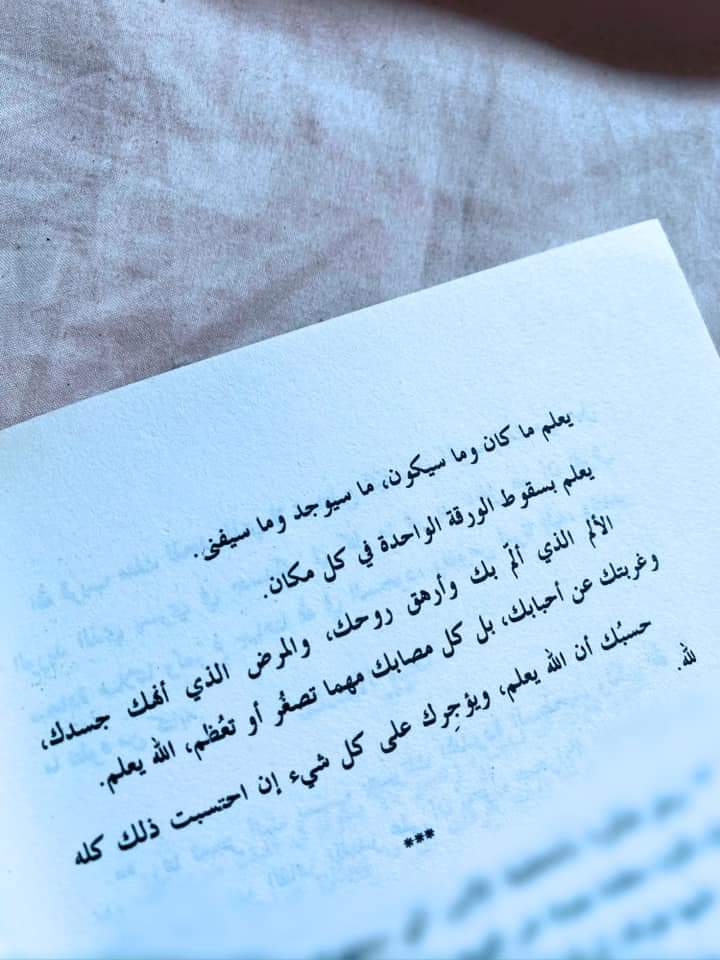 يعلم ما كان وما سيكون، ما سيوجد وما سيفنى.
يعلم بسقوط الورقة الواحدة في كل مكان.
الألم الذي ألمّ بك وأرهق روحك، والمرض الذي أنهك جسدك،
وغربتك عن أحبابك، بل كل مصابك مهما تصغُر أو تعُظم، الله يعلم.
حسبُك أن الله يعلم، ويؤجِرك على كل شيء إن احتسبت ذلك كله
لله.
***